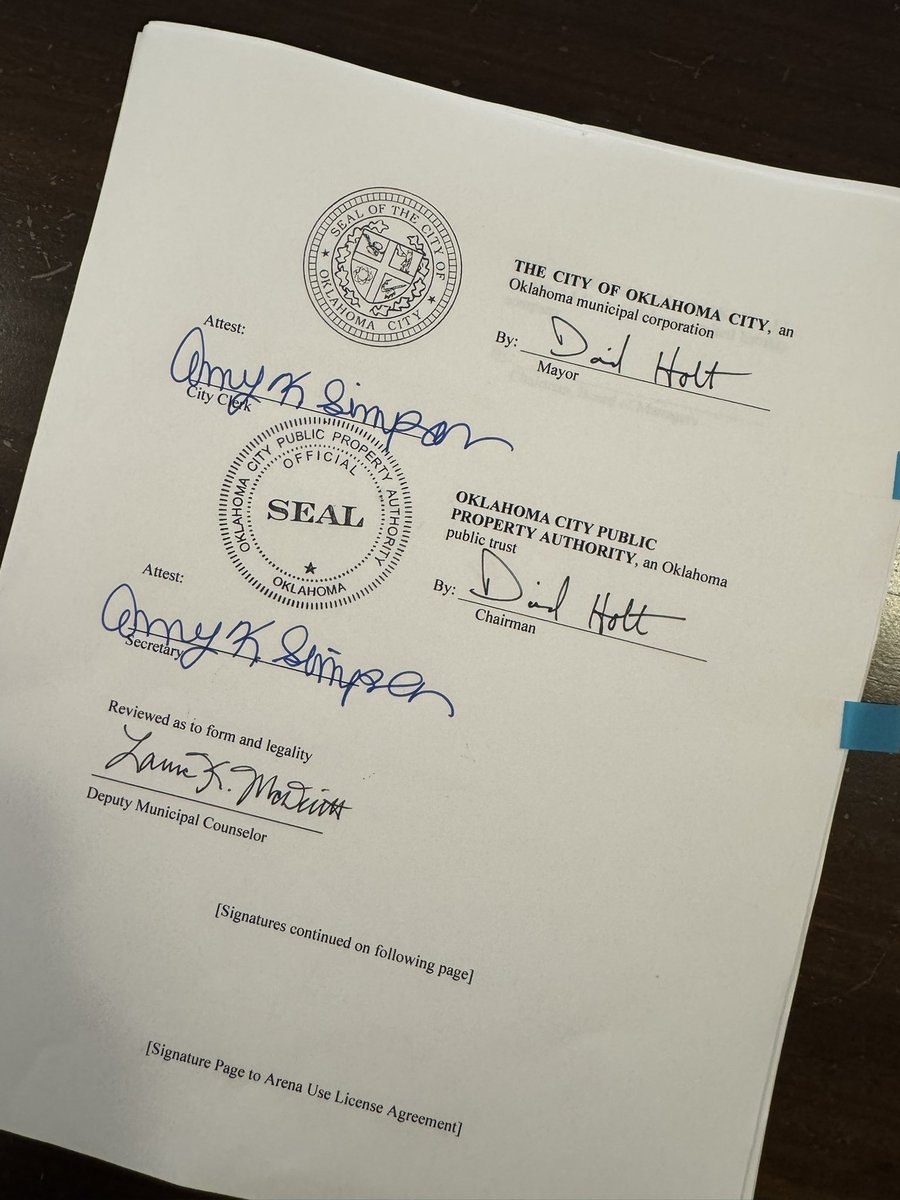 SEAL OF THE CITY OF
OKLAHOMA CITY
THE CITY OF OKLAHOMA CITY, an
Oklahoma municipal corporation
By: David Holt
Mayor
Attest:
Amy K Simpson
City Clerk
OKLAHOMA CITY PUBLIC PROPERTY AUTHORITY
OFFICIAL
SEAL
OKLAHOMA
OKLAHOMA CITY PUBLIC
PROPERTY AUTHORITY, an Oklahoma
public trust
By: David Holt
Chairman
Attest:
Amy K Simpson
Secretary
Reviewed as to form and legality
K.
Deputy Municipal Counselor
[Signatures continued on following page]
[Signature Page to Arena Use License Agreement]